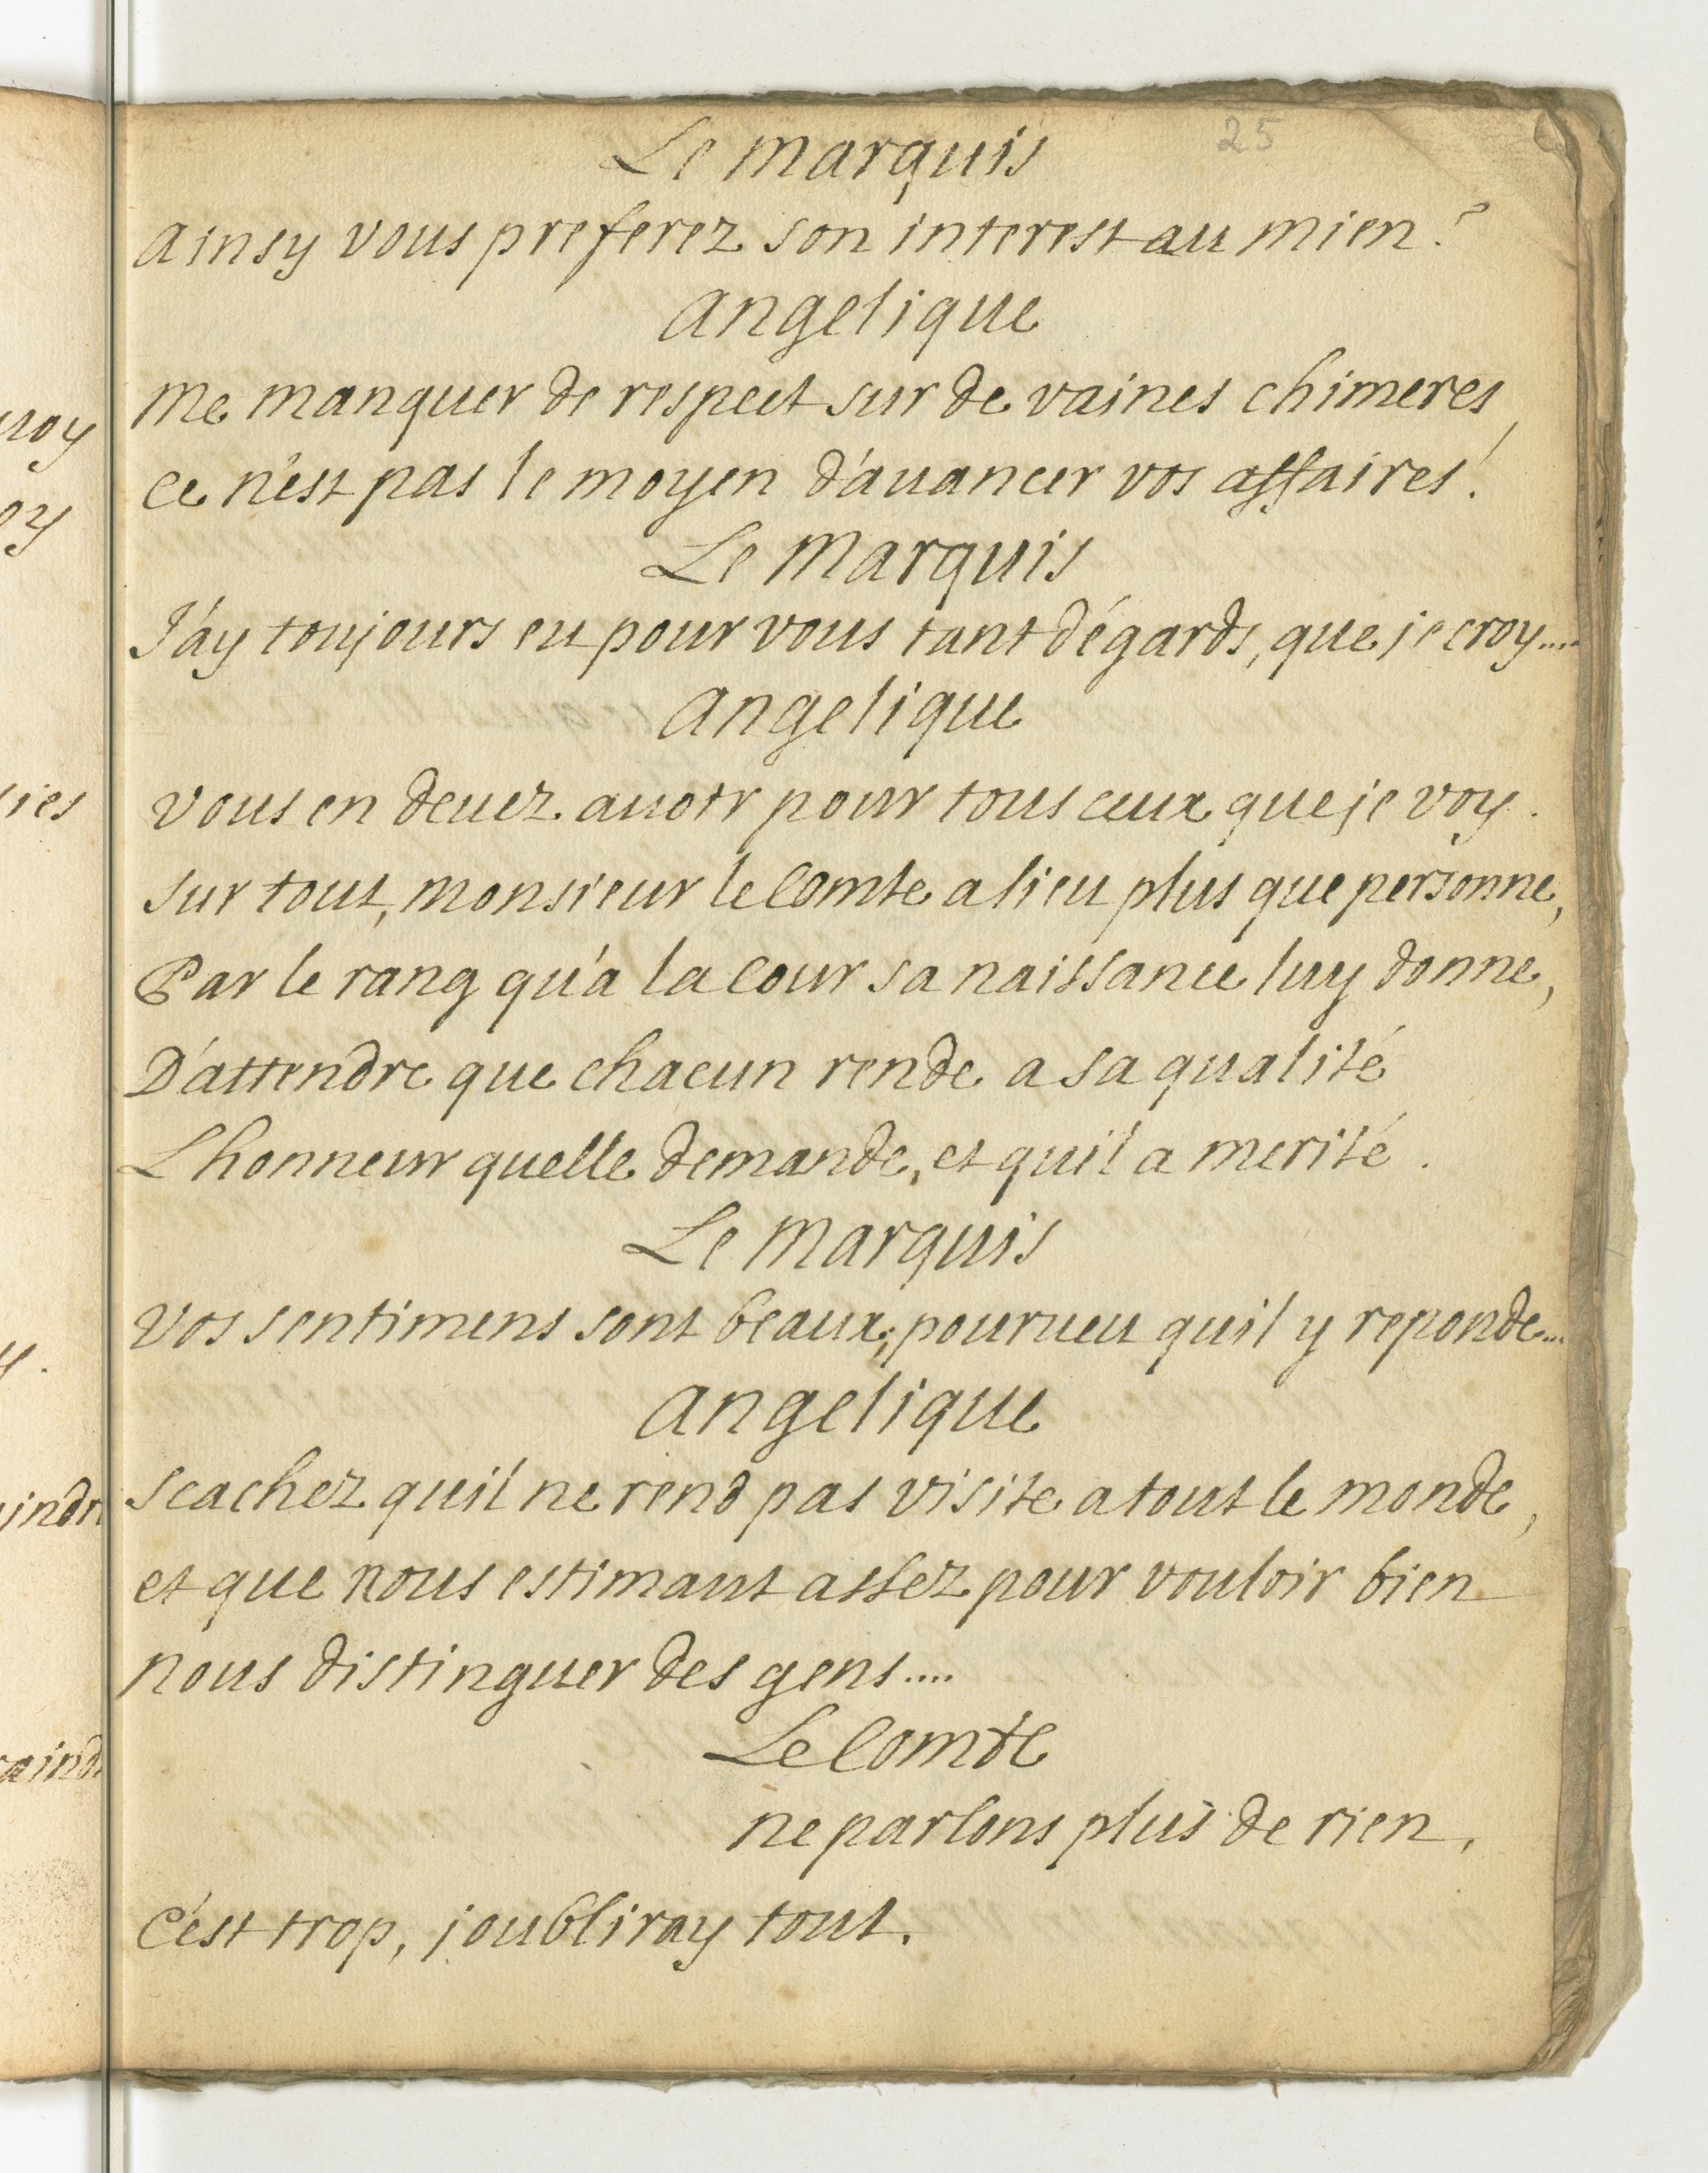 25
Le marquis
ainsy vous preferez son interest au mien ?
angelique
Me manquer de respect sur de vaines chimeres,
ce n'est pas le moyen d'auancer vos affaires !
Le marquis
J'ay toujours eu pour vous tant d'égards, que je croy....
angelique
vous en deuez auoir pour tous ceux que je voy.
sur tout, monsieur le Comte a lieu plus que personne,
Par le rang qu'a la Cour sa naissance luy donne,
D'attendre que chacun rende a sa qualité
L'honneur quelle demande, et quil a merité.
Le marquis
Vos sentimens sont beaux; pourueu quil y reponde...
angelique
scachez quil ne rend pas visite a tout le monde,
et que nous estimant assez pour vouloir bien
nous distinguer des gens....
Le Comte
ne parlons plus de rien,
C'est trop, j'oubliray tout.